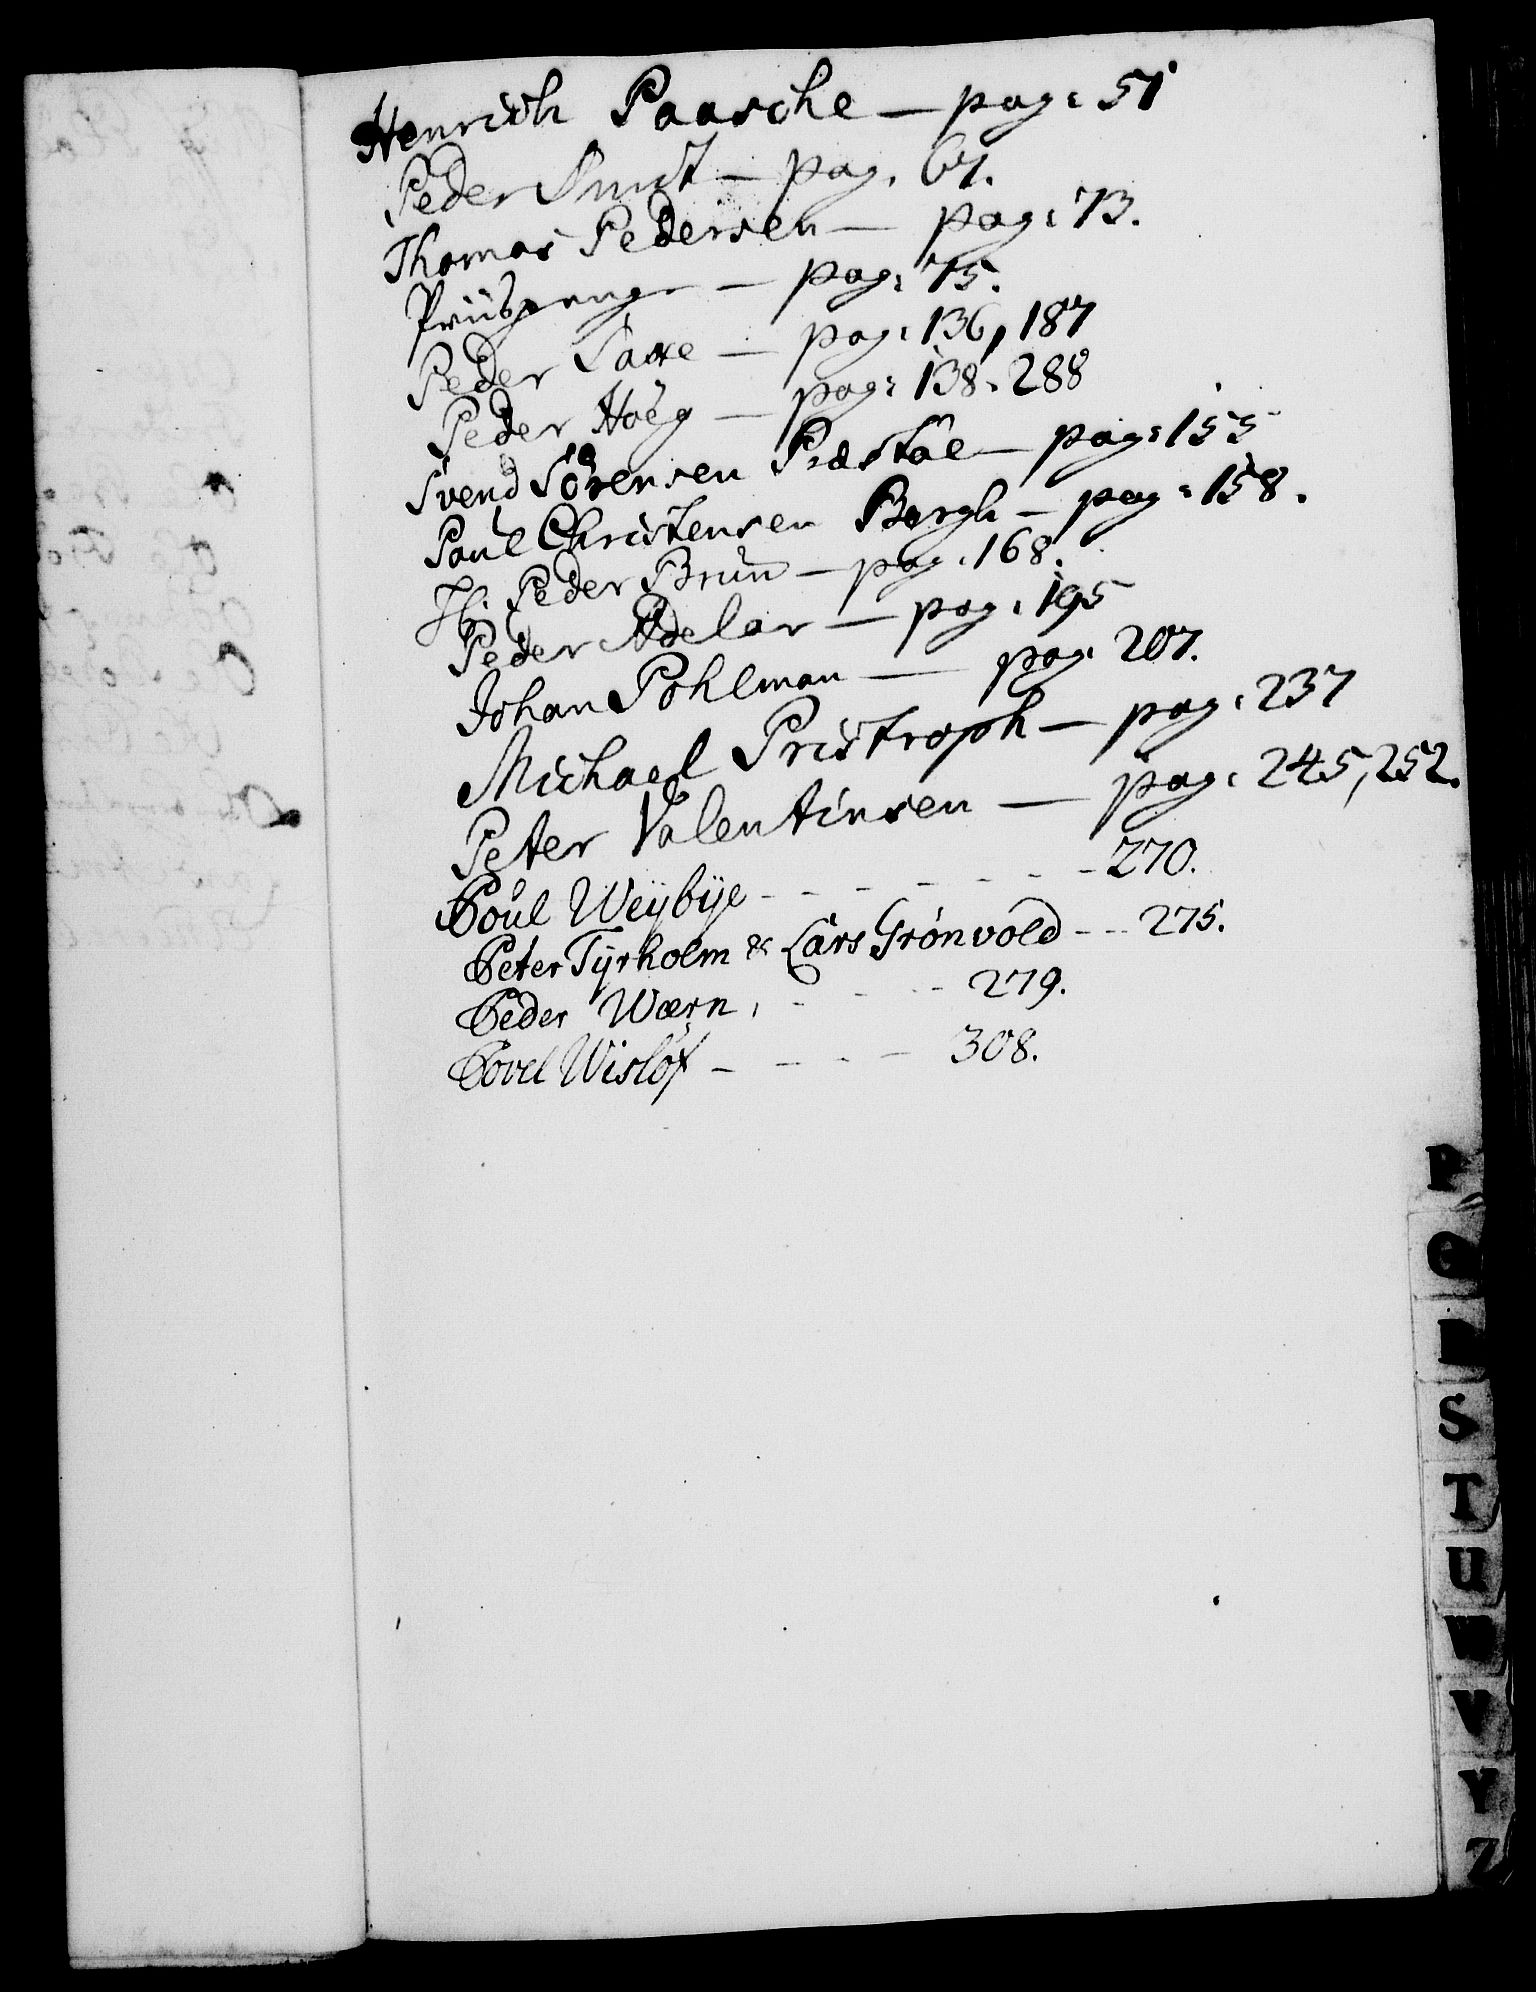 Henrich Paasche — pag: 51
Peder Smit — pag. 67.
Thomas Pedersen — pag: 73.
— pag: 75.
Peder Sasse — pag: 136, 187
Peder Hoëg — pag: 138. 288
Svend Sörensen Præstöe — pag: 155
Poul Christensen Borgh — pag: 158.
Peder Brun — pag: 168.
Peder Adelar — pag: 195
Johan Pohlman — pag. 207.
Michael Pristroph — pag: 237
Peter Valentinsen — pag: 245, 252.
Poul Weÿbÿe - - - - - - - 270.
Peter Tÿrholm & Lars Grönvold - - - 275.
Peder Wærn, - - - - 279.
Povel Wislöf - - - - 308.
P
Q
R
S
T
U
W
V
Y
Z